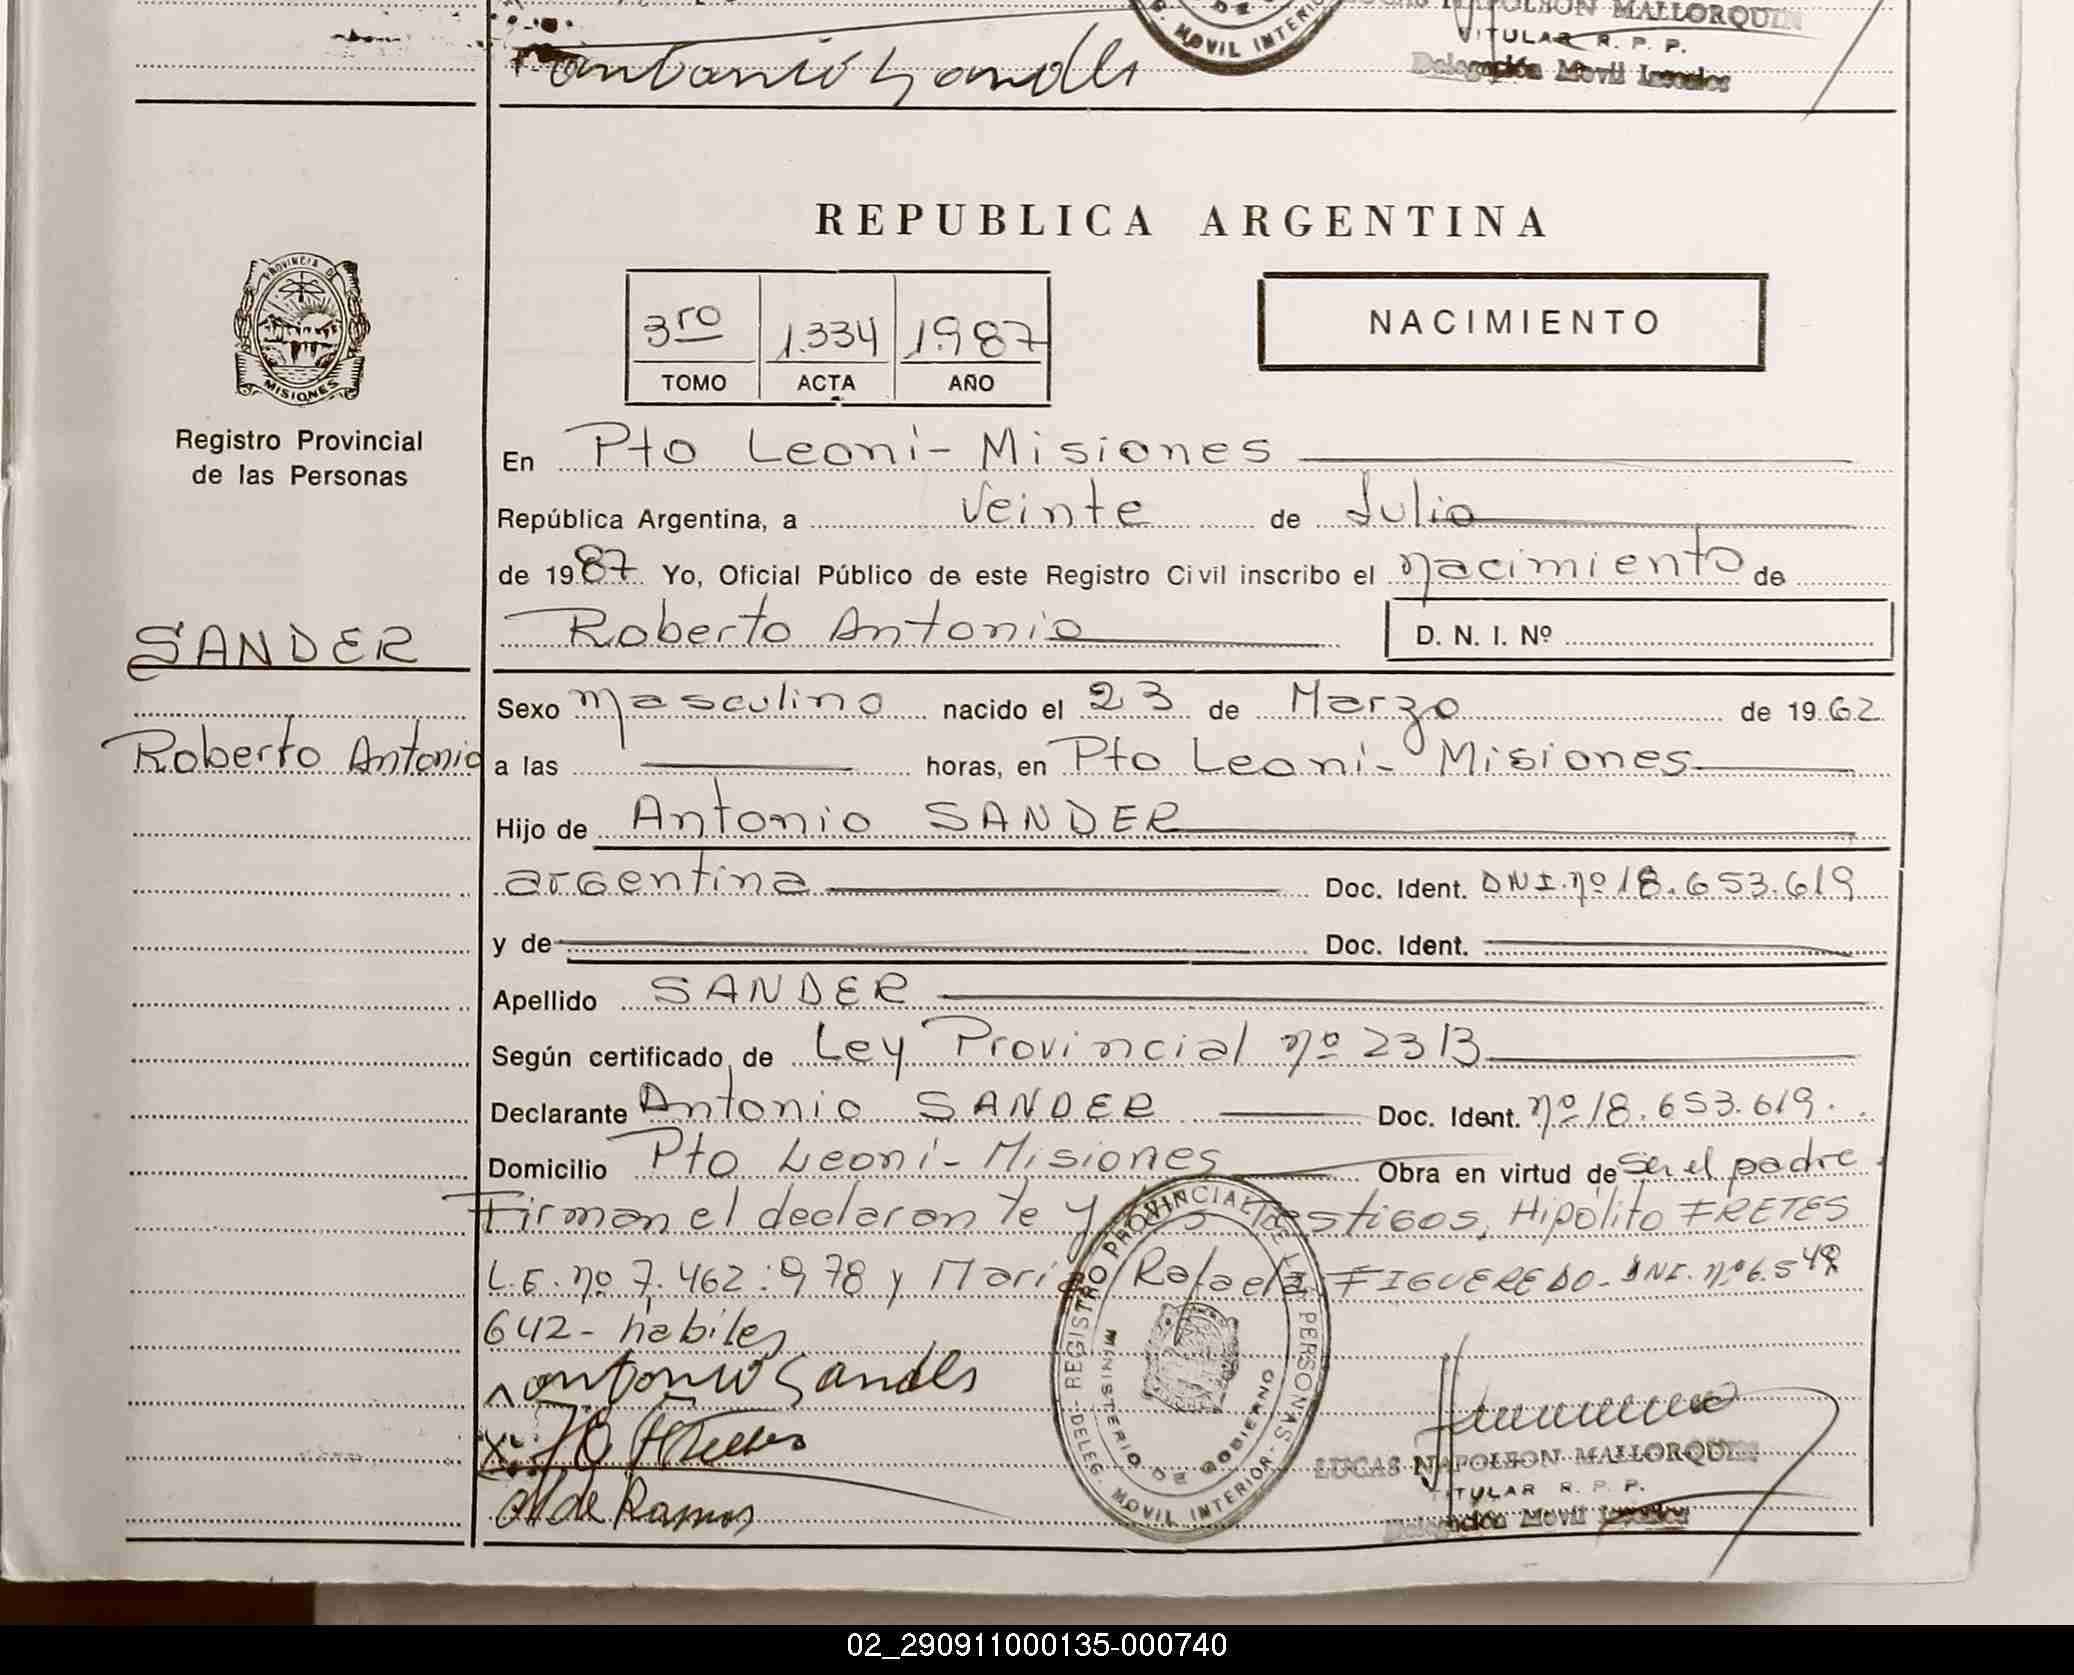 LUCAS NAPOLEON MALLORQUIN
TITULAR R. P. P.
Delegación Movil Interior
Antonio Sander
MOVIL INTERIOR
REPUBLICA ARGENTINA
PROVINCIA DE
MISIONES
3ro 1.334 1987
TOMO ACTA AÑO
NACIMIENTO
Registro Provincial
de las Personas
En Pto Leoni - Misiones
República Argentina, a veinte de Julio
de 1987 Yo, Oficial Público de este Registro Civil inscribo el nacimiento de
Roberto Antonio D. N. I. Nº
SANDER
Roberto Antonio
Sexo masculino nacido el 23 de Marzo de 1962
a las horas, en Pto Leoni - Misiones
Hijo de Antonio SANDER
argentina Doc. Ident. DNI. nº 18.653.619
y de Doc. Ident.
Apellido SANDER
Según certificado de Ley Provincial nº 2313
Declarante Antonio SANDER Doc. Ident. nº 18.653.619.
Domicilio Pto Leoni - Misiones Obra en virtud de ser el padre
Firman el declarante y los Testigos, Hipólito FRETES
L.E. nº 7.462.978 y María Rafaela FIGUEREDO - DNI. nº 6.549
642 - hábiles
Antonio Sander
de Ramos
REGISTRO PROVINCIAL DE LAS PERSONAS - DELEG. MOVIL INTERIOR -
MINISTERIO DE GOBIERNO
LUCAS NAPOLEON MALLORQUIN
TITULAR R. P. P.
Delegación Movil Interior
02_290911000135-000740